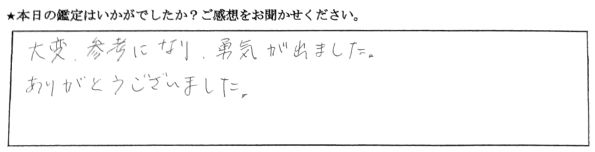 ★本日の鑑定はいかがでしたか?ご感想をお聞かせください。
大変、参考になり、勇気が出ました。
ありがとうございました。